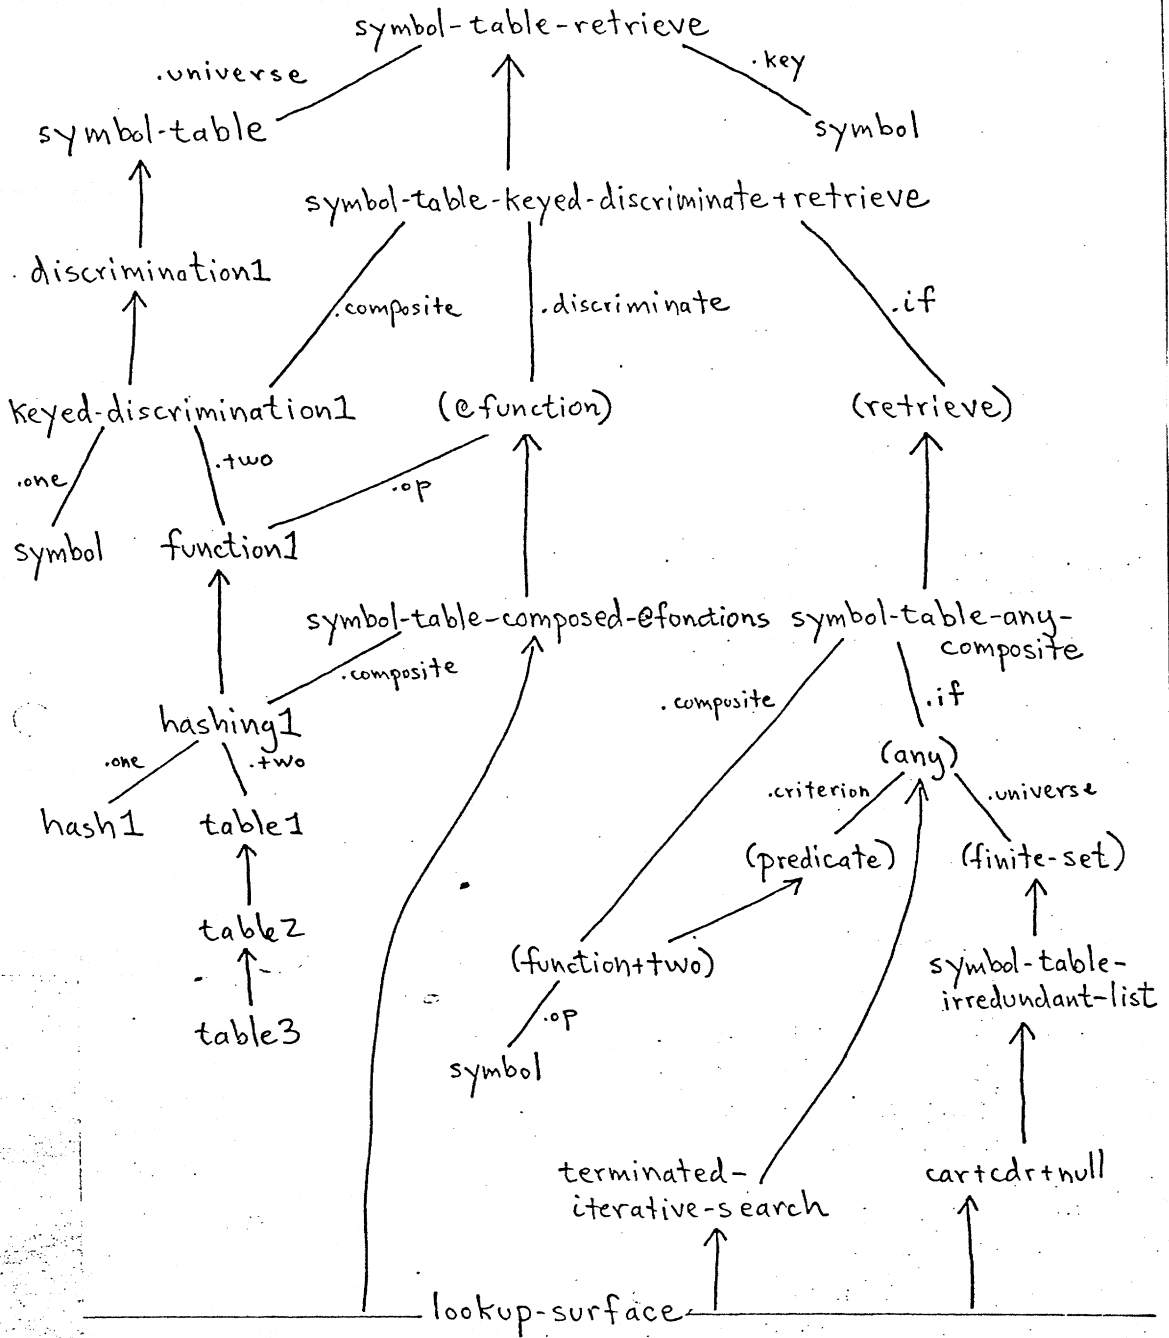 symbol-table-retrieve
.universe
.key
symbol-table
symbol
symbol-table-keyed-discriminate+retrieve
discrimination1
.composite
.discriminate
.if
keyed-discrimination1
(@function)
(retrieve)
.one
.two
.op
symbol
function1
symbol-table-composed-@fonctions
symbol-table-any-
composite
.composite
.composite
.if
hashing1
.one
.two
(any)
.criterion
.universe
hash1
table1
(predicate)
(finite-set)
table2
(function+two)
symbol-table-
irredundant-list
.op
table3
symbol
terminated-
iterative-search
car+cdr+null
lookup-surface